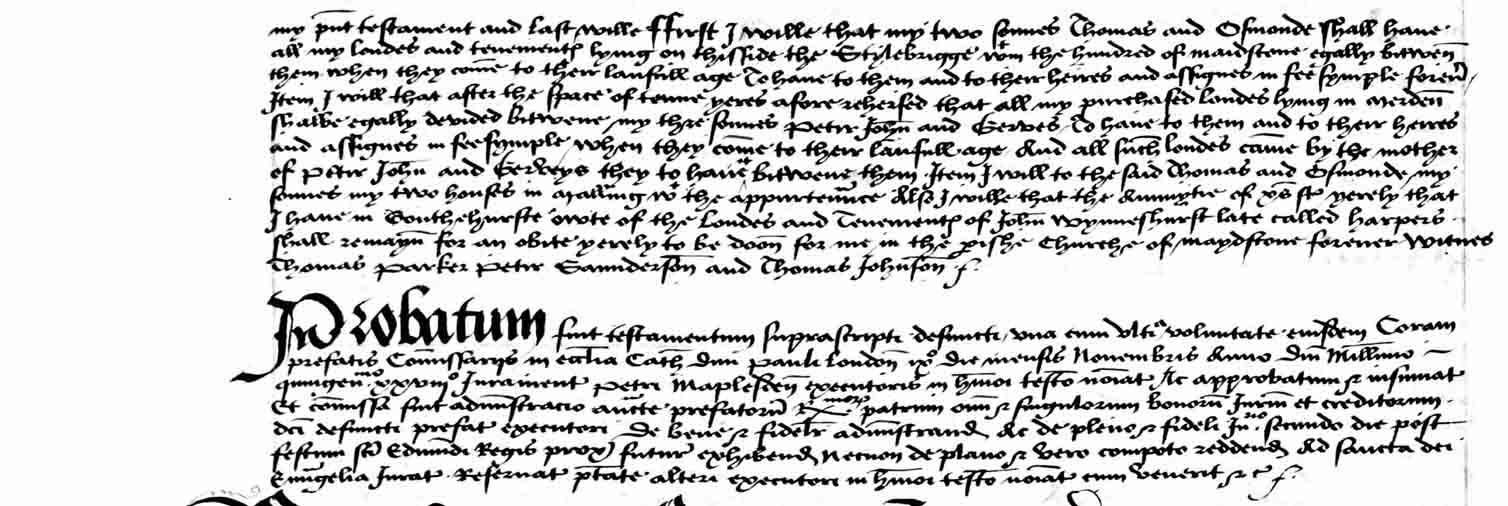 my p̄nt testament and last wille ffirst I wille that my two sonnes Thomas and Osmonde shall haue
all my londes and tenementꝭ lying on thisside the Stylebrigge wtin the hundred of maidstone egally bitwen̄
them when they come to their laufull age To haue to them and to their heires and assignes in fee symple foreū
Item I will that after the space of tenne yeres afore rehersed that all my purchased londes lying in merden̄
shalbe egally devided bitwene my thre sonnes Petir John̄ and Gerves To haue to them and to their heires
and assignes in fee symple when they come to their laufull age And all such londes came by the mother
of Petir John̄ and Gerveys they to haue it bitwene them Item I will to the said Thomas and Osmonde my
sonnes my two houses in Malling wt the appurtenn̄ce Also I wille that the Annuytie of xvs st yerely that
I haue in Southehurste owte of the londes and Tenementꝭ of John̄ Wymeshurst late called harpers
shall remayn̄ for an obite yerely to be doon̄ for me in the p̄ishe Churche of Maydstone foreuer Witnes
Thomas Parker Petir Saunderson̄ and Thomas Johnson̄
Probatum fuit testamentum suprascripti defuncti vna cum vlti voluntate eiusdem Coram
prefatis Com̄issarijs in eccl̄ia Cath̄ diui Pauli London̄ ixo die mensis Nouembris Anno Dn̄i Millimo
quingen̄mo xxviijo Iurament Petri Maplesden̄ executoris in h̄moi testo noiat Ac approbatum & insinuat
Et com̄issa fuit admīstracio aucte prefatorū Rmorꝫ patrum om̄i & singulorum bonorū Iuriū et creditorum
dc̄i defuncti prefat executori De bene & fidelr admīstrand Ac de pleno & fideli Inuo secundo die post
festum sc̄i Edmūdi Regis prox futur exhibend Necnon de plano & vero compoto reddend Ad sancta dei
Euangelia Iurat Reseruat p̄tate alteri executori in h̄moi testo noiat cum venerit &c